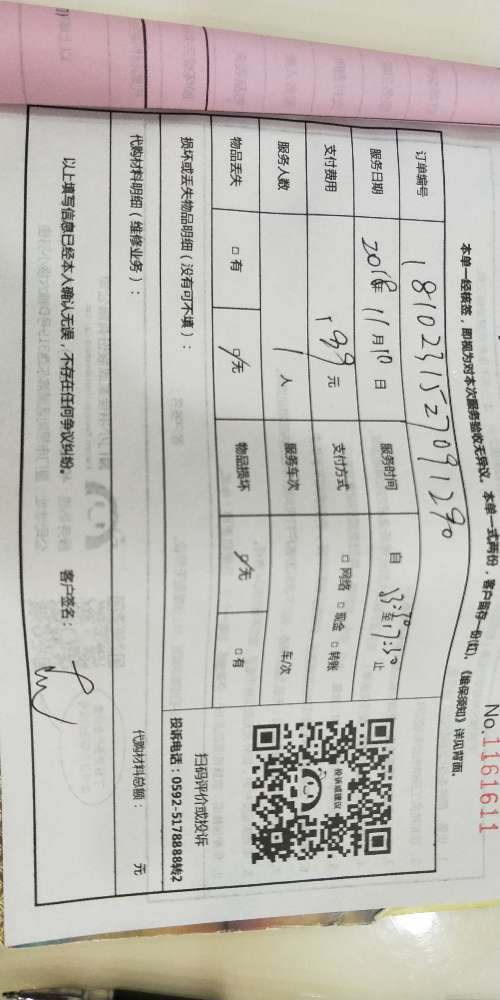 No.1161611
本单一经核签，即视为对本次服务验收无异议。本单一式两份，客户留存一份(红)。《维保须知》详见背面。
订单编号 1810231527091290
服务日期 2018年 11月10日 服务时间 自 13:30 至 17:30 止
支付费用 199 元 支付方式 □ 网络 □ 现金 □ 转账
服务人数 1 人 服务车次 车/次
物品丢失 □ 有 □ 无 物品损坏 □ 无 □ 有
损坏或丢失物品明细（没有可不填）：
投诉或建议
扫码评价或投诉
投诉电话：0592-5178888转2
代购材料明细（维修业务）： 代购材料总额： 元
以上填写信息已经本人确认无误，不存在任何争议纠纷。 客户签名：